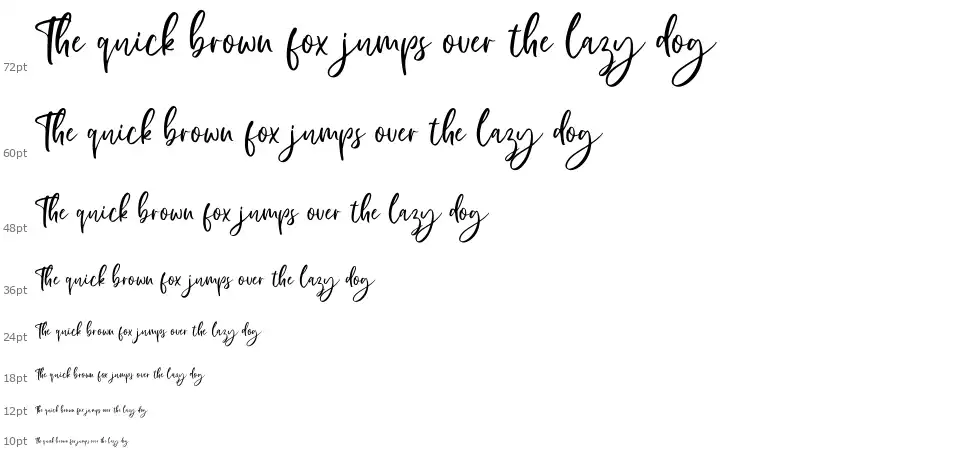 The quick brown fox jumps over the lazy dog
72pt
The quick brown fox jumps over the lazy dog
60pt
The quick brown fox jumps over the lazy dog
48pt
The quick brown fox jumps over the lazy dog
36pt
The quick brown fox jumps over the lazy dog
24pt
The quick brown fox jumps over the lazy dog
18pt
The quick brown fox jumps over the lazy dog
12pt
The quick brown fox jumps over the lazy dog
10pt